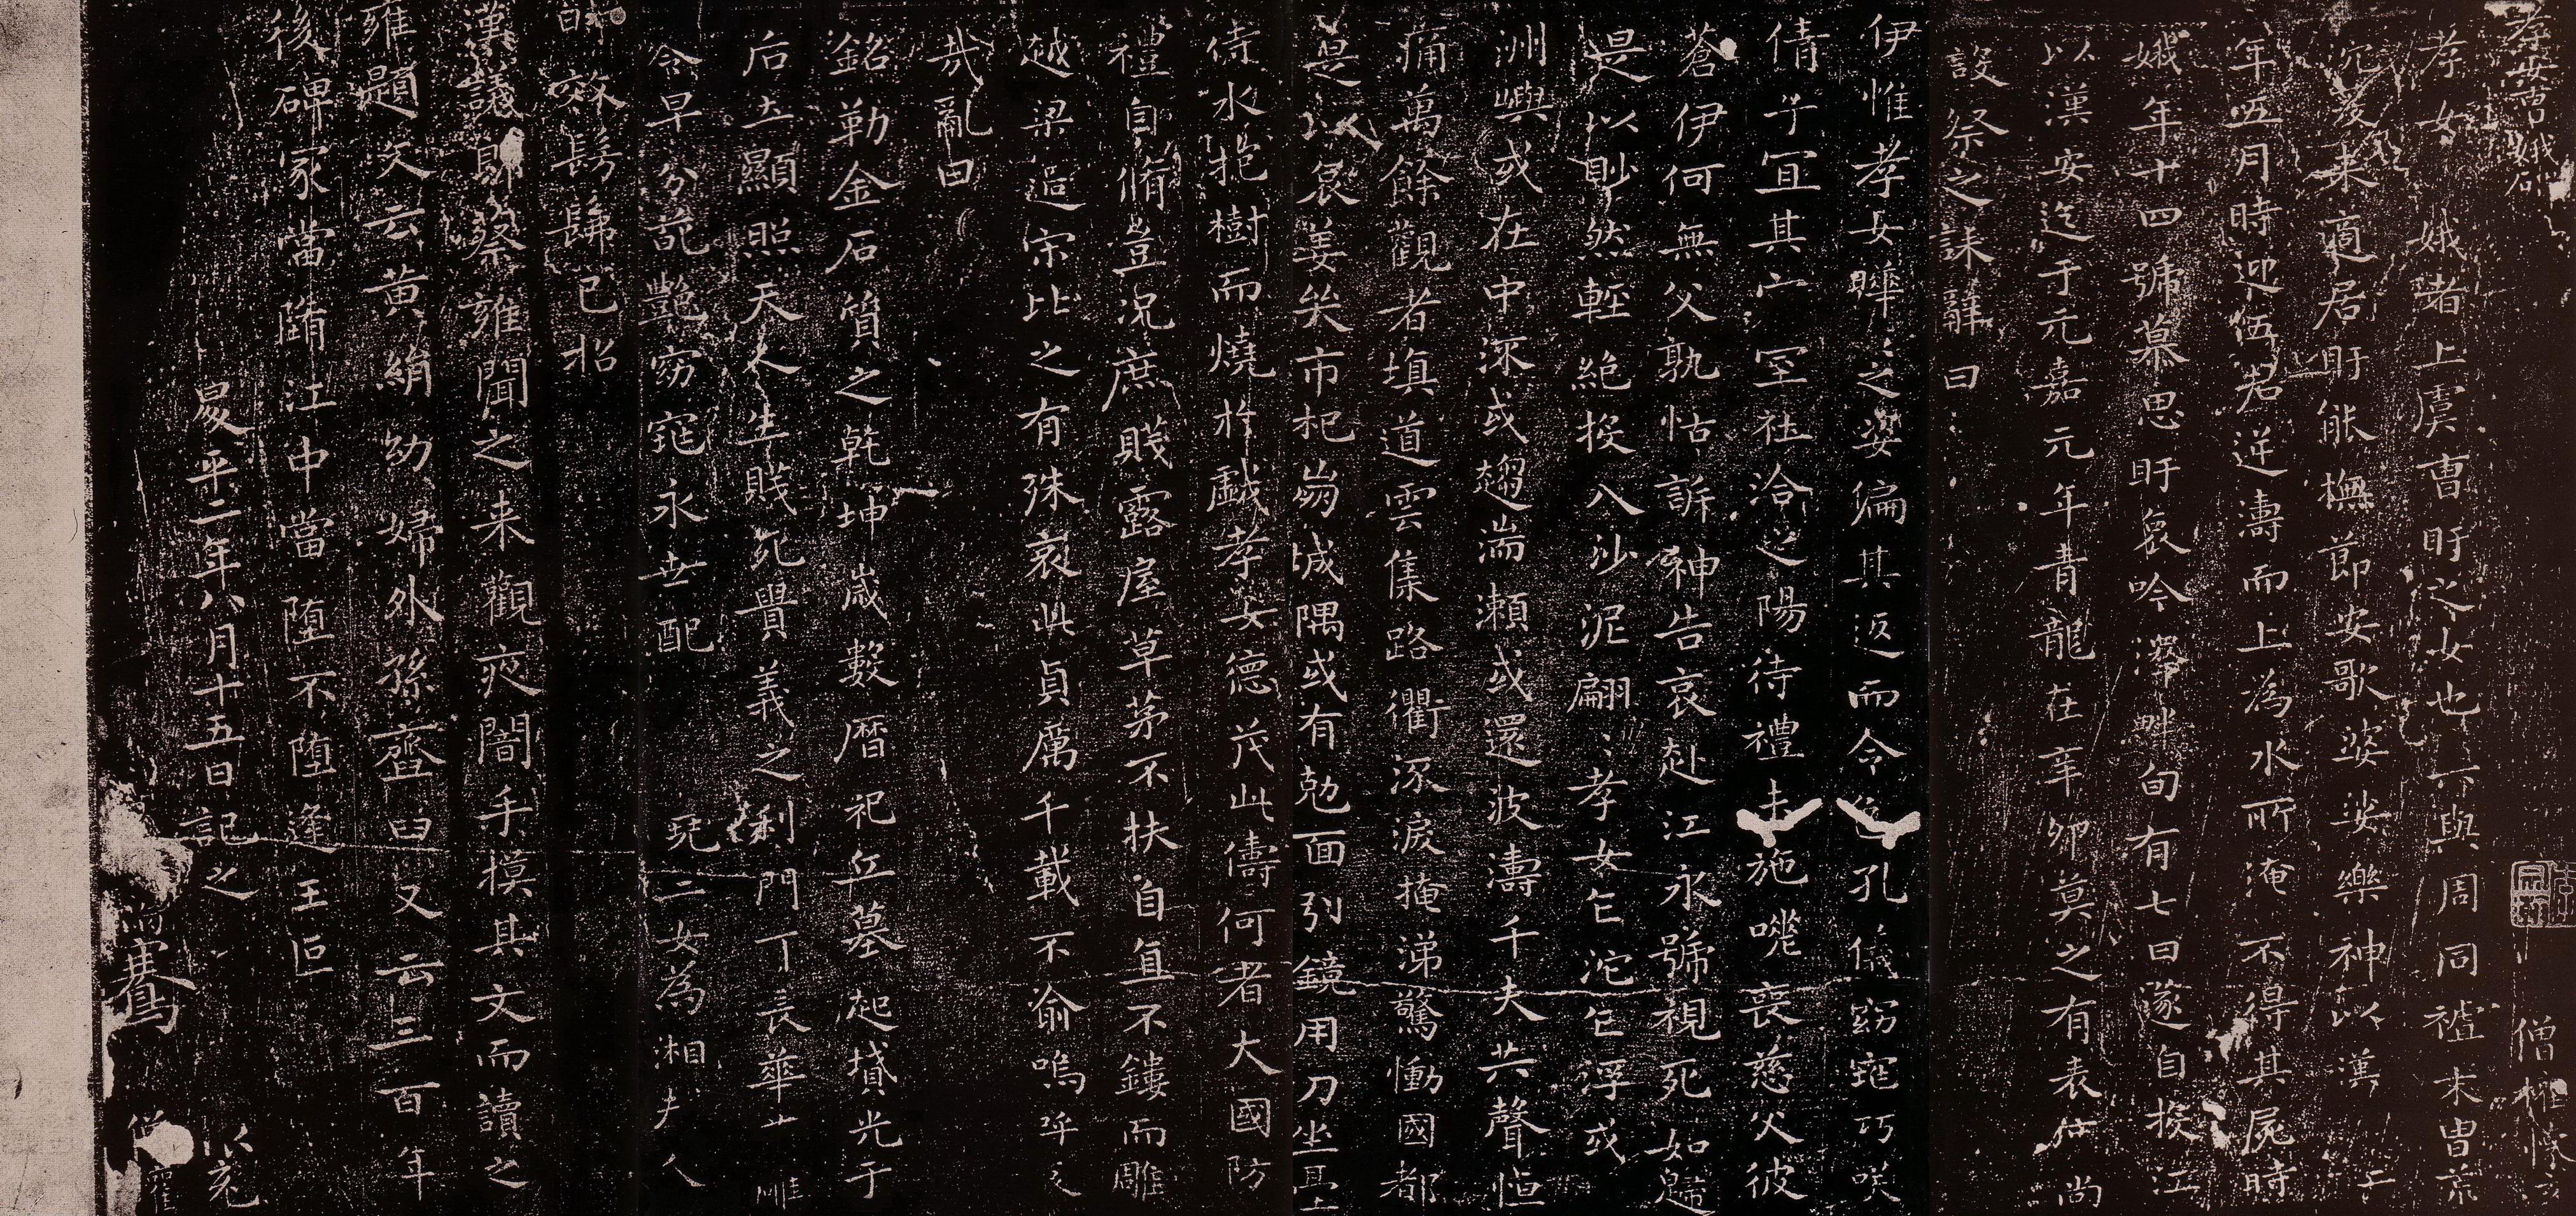 孝女曹娥碑
孝女曹娥者上虞曹盱之女也其先與周同祖末胄荒
沉爰来適居盱能撫節安歌婆娑樂神以漢安二
年五月時迎伍君逆濤而上為水所淹不得其屍時
娥年十四號慕思盱哀吟澤畔旬有七日遂自投江
死經五日抱父屍出以漢安迄于元嘉元年青龍在辛卯莫之有表度尚
設祭之誄辭曰
伊惟孝女曄〻之姿偏其返而令色孔儀窈窕巧笑
倩兮宜其家室在洽之陽待禮未施嗟喪慈父彼
蒼伊何無父孰怙訴神告哀赴江永號視死如歸
是以眇然輕絕投入沙泥翩〻孝女乍沈乍浮或
洲嶼或在中流或趨湍瀬或還波濤千夫共聲悼
痛萬餘觀者填道雲集路衢流淚掩涕驚慟國都
是以哀姜哭市杞崩城隅或有尅面引鏡用刀坐臺
待水抱樹而燒於戲孝女德茂此儔何者大國防
禮自脩豈況庶賤露屋草茅不扶自直不鏤而雕
越梁過宋比之有殊哀此貞厲千載不渝嗚呼
哀哉亂曰
銘勒金石質之乾坤歲數曆祀丘墓起墳光于
后土顯照天人生賤死貴義之利門何悵華落雕
零早分葩艷窈窕永世配神若堯二女為湘夫人
時效髣髴已招後昆
漢議郎蔡雍聞之来觀夜闇手摸其文而讀之
雍題文云黃絹幼婦外孫齏臼又云三百年
後碑冢當墮江中當堕不堕逢王叵
昇平二年八月十五日記之
僧權
騫